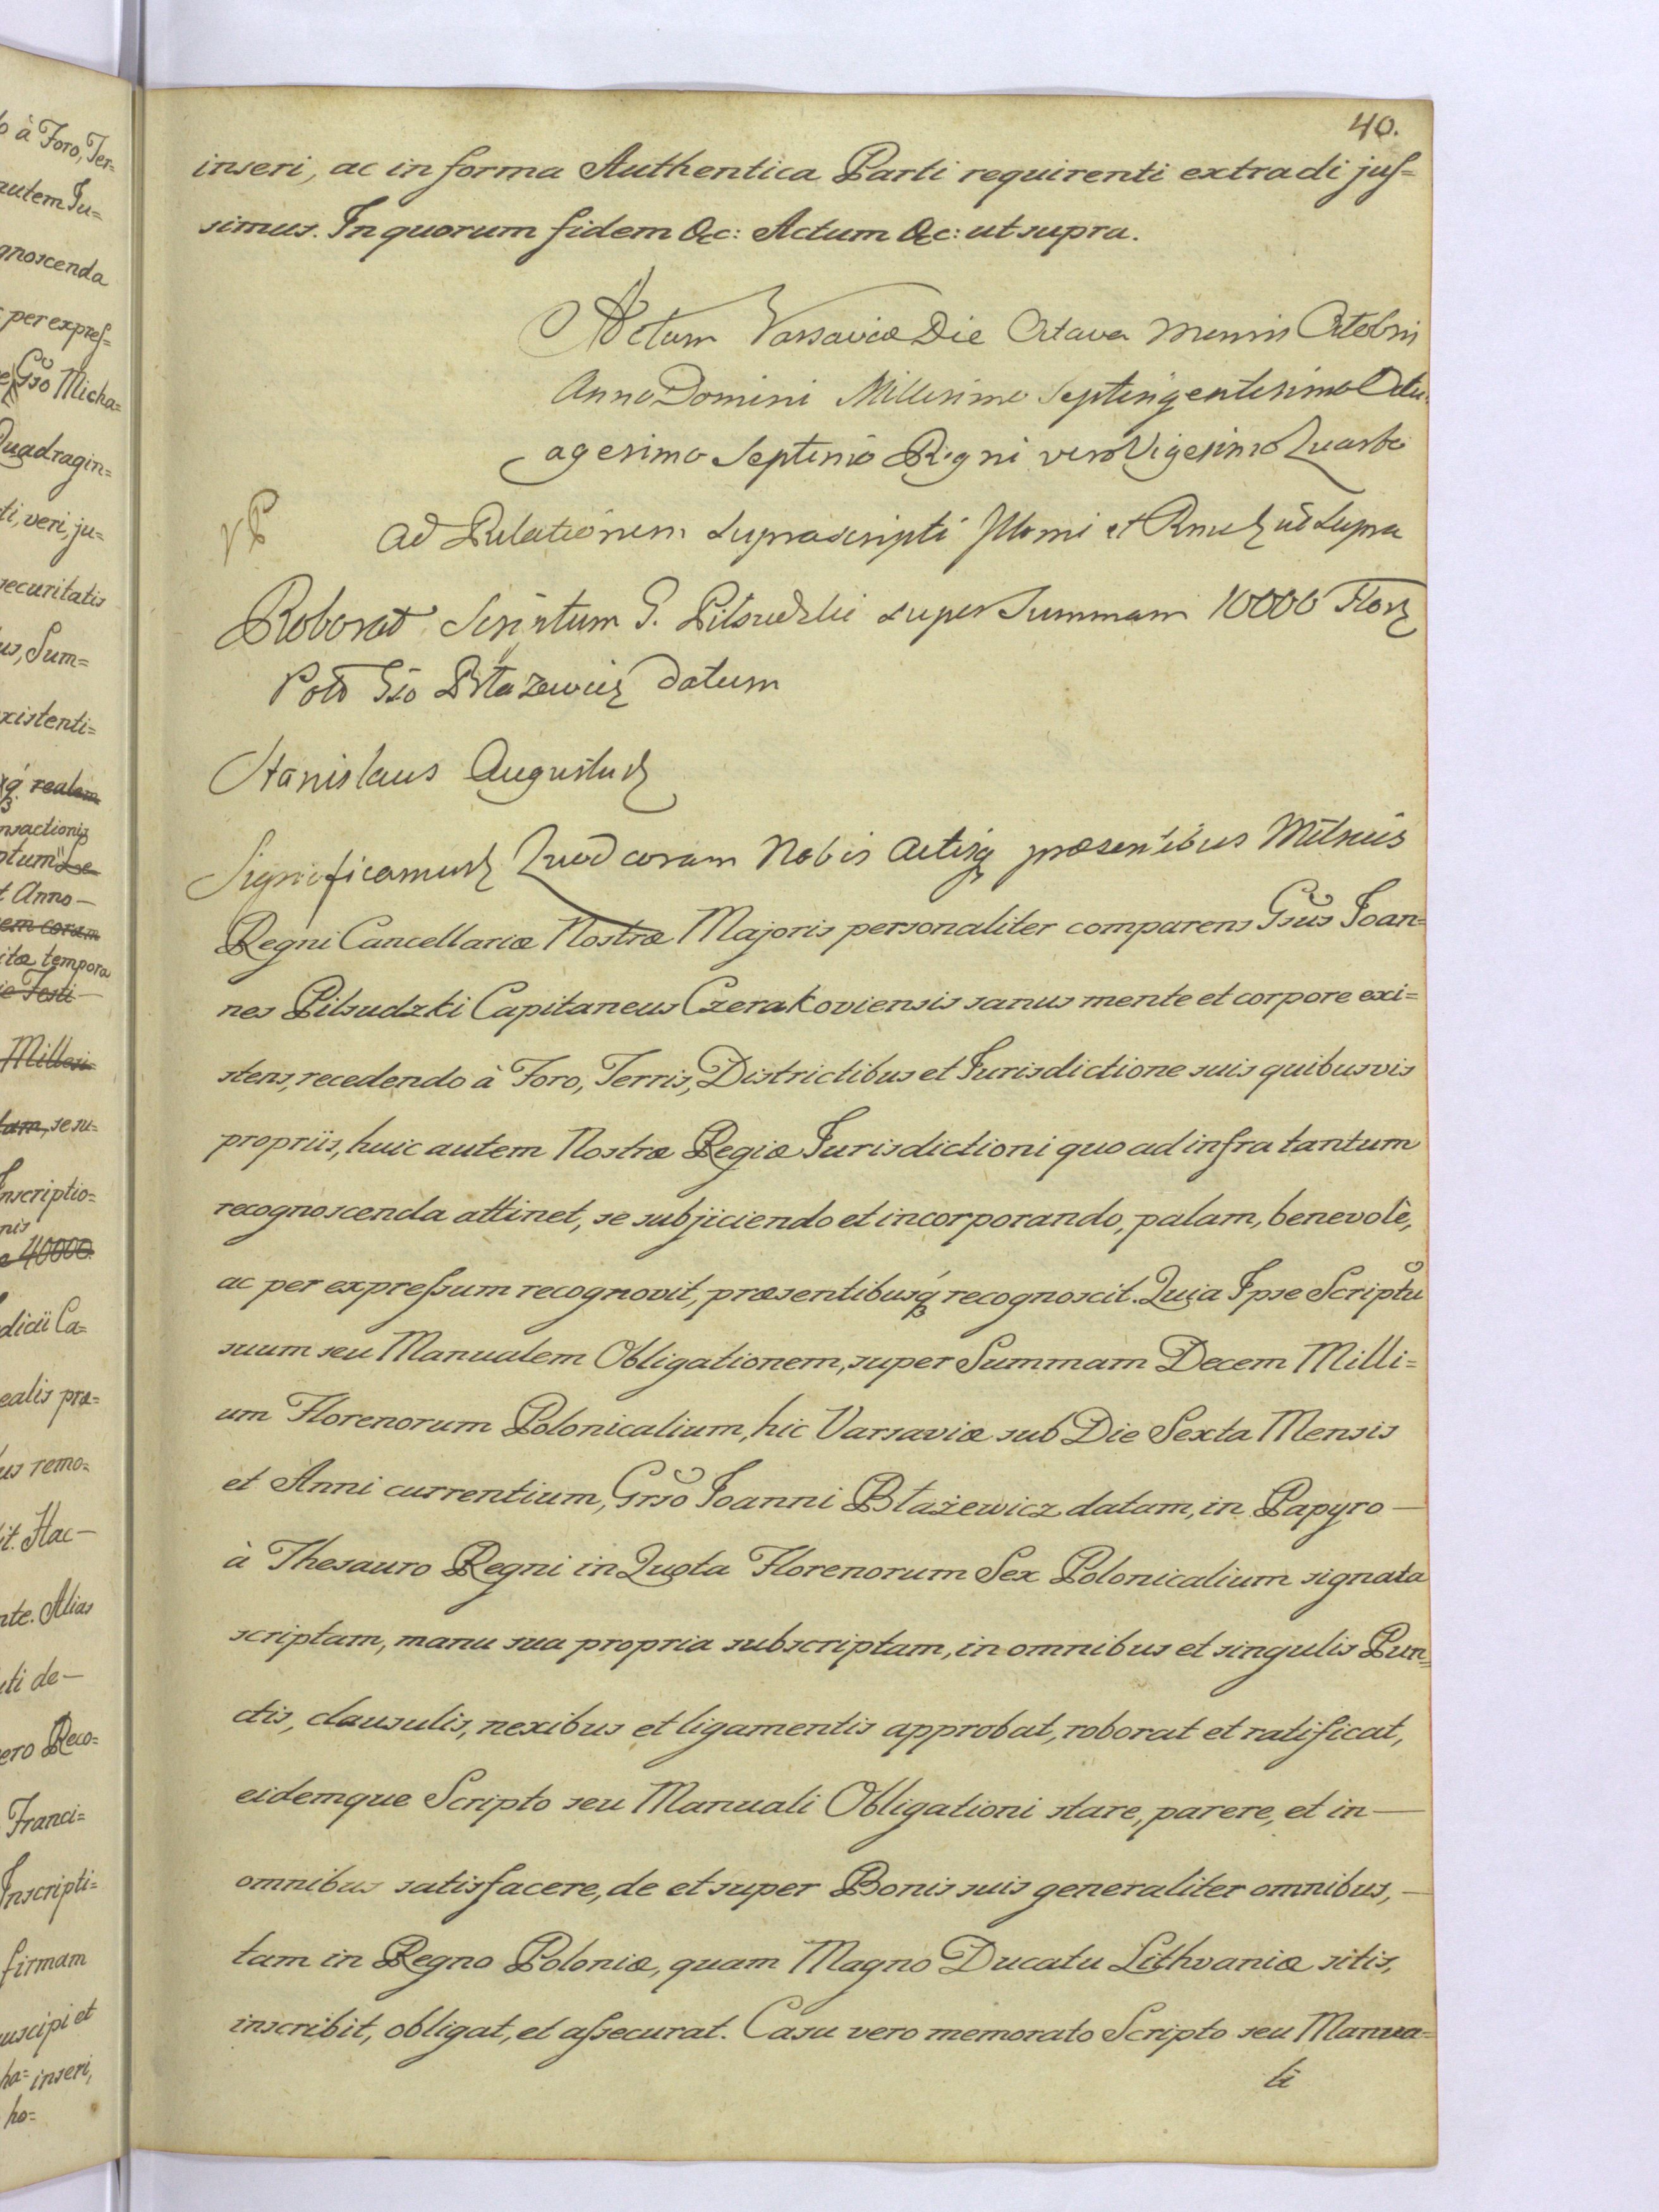 40.
inseri, ac in forma Authentica Parti requirenti extradi jus=
simus. In quorum fidem &c: Actum &c: ut supra.
Actum Varsaviæ Die Octava Mensis Octobris
Anno Domini Millesimo Septingentesimo Octu
agesimo Septimo Regni vero Vigesimo Quarto
Ad Relationem Suprascripti Illomi et Rmi ut Supra
Roborat Scriptum G. Pilsudzki super Summam 10000 Flor
Pol Gso Błażewicz datum
Stanislaus Augustus
Significamus Quod coram Nobis Actisq præsentibus Mtricis
Regni Cancellariæ Nostræ Majoris personaliter comparens Gsus Joan=
nes Pilsudzki Capitaneus Czerakoviensis sanus mente et corpore exi=
stens, recedendo à Foro, Terris, Districtibus et Jurisdictione suis quibusvis
propriis, huic autem Nostræ Regiæ Jurisdictioni quo ad infra tantum
recognoscenda attinet, se subjiciendo et incorporando, palam, benevolè,
ac per expressum recognovit, præsentibusq́ recognoscit. Quia Ipse Scriptũ
suum seu Manualem Obligationem, super Summam Decem Milli=
um Florenorum Polonicalium, hic Varsaviæ sub Die Sexta Mensis
et Anni currentium, Grso Joanni Błażewicz datam, in Papyro —
à Thesauro Regni in Quota Florenorum Sex Polonicalium signata
scriptam, manu sua propria subscriptam, in omnibus et singulis Pun=
ctis, clausulis, nexibus et ligamentis approbat, roborat et ratificat,
eidemque Scripto seu Manuali Obligationi stare, parere, et in —
omnibus satisfacere, de et super Bonis suis generaliter omnibus, —
tam in Regno Poloniæ, quam Magno Ducatu Lithvaniæ sitis,
inscribit, obligat, et assecurat. Casu vero memorato Scripto seu Manua=
li